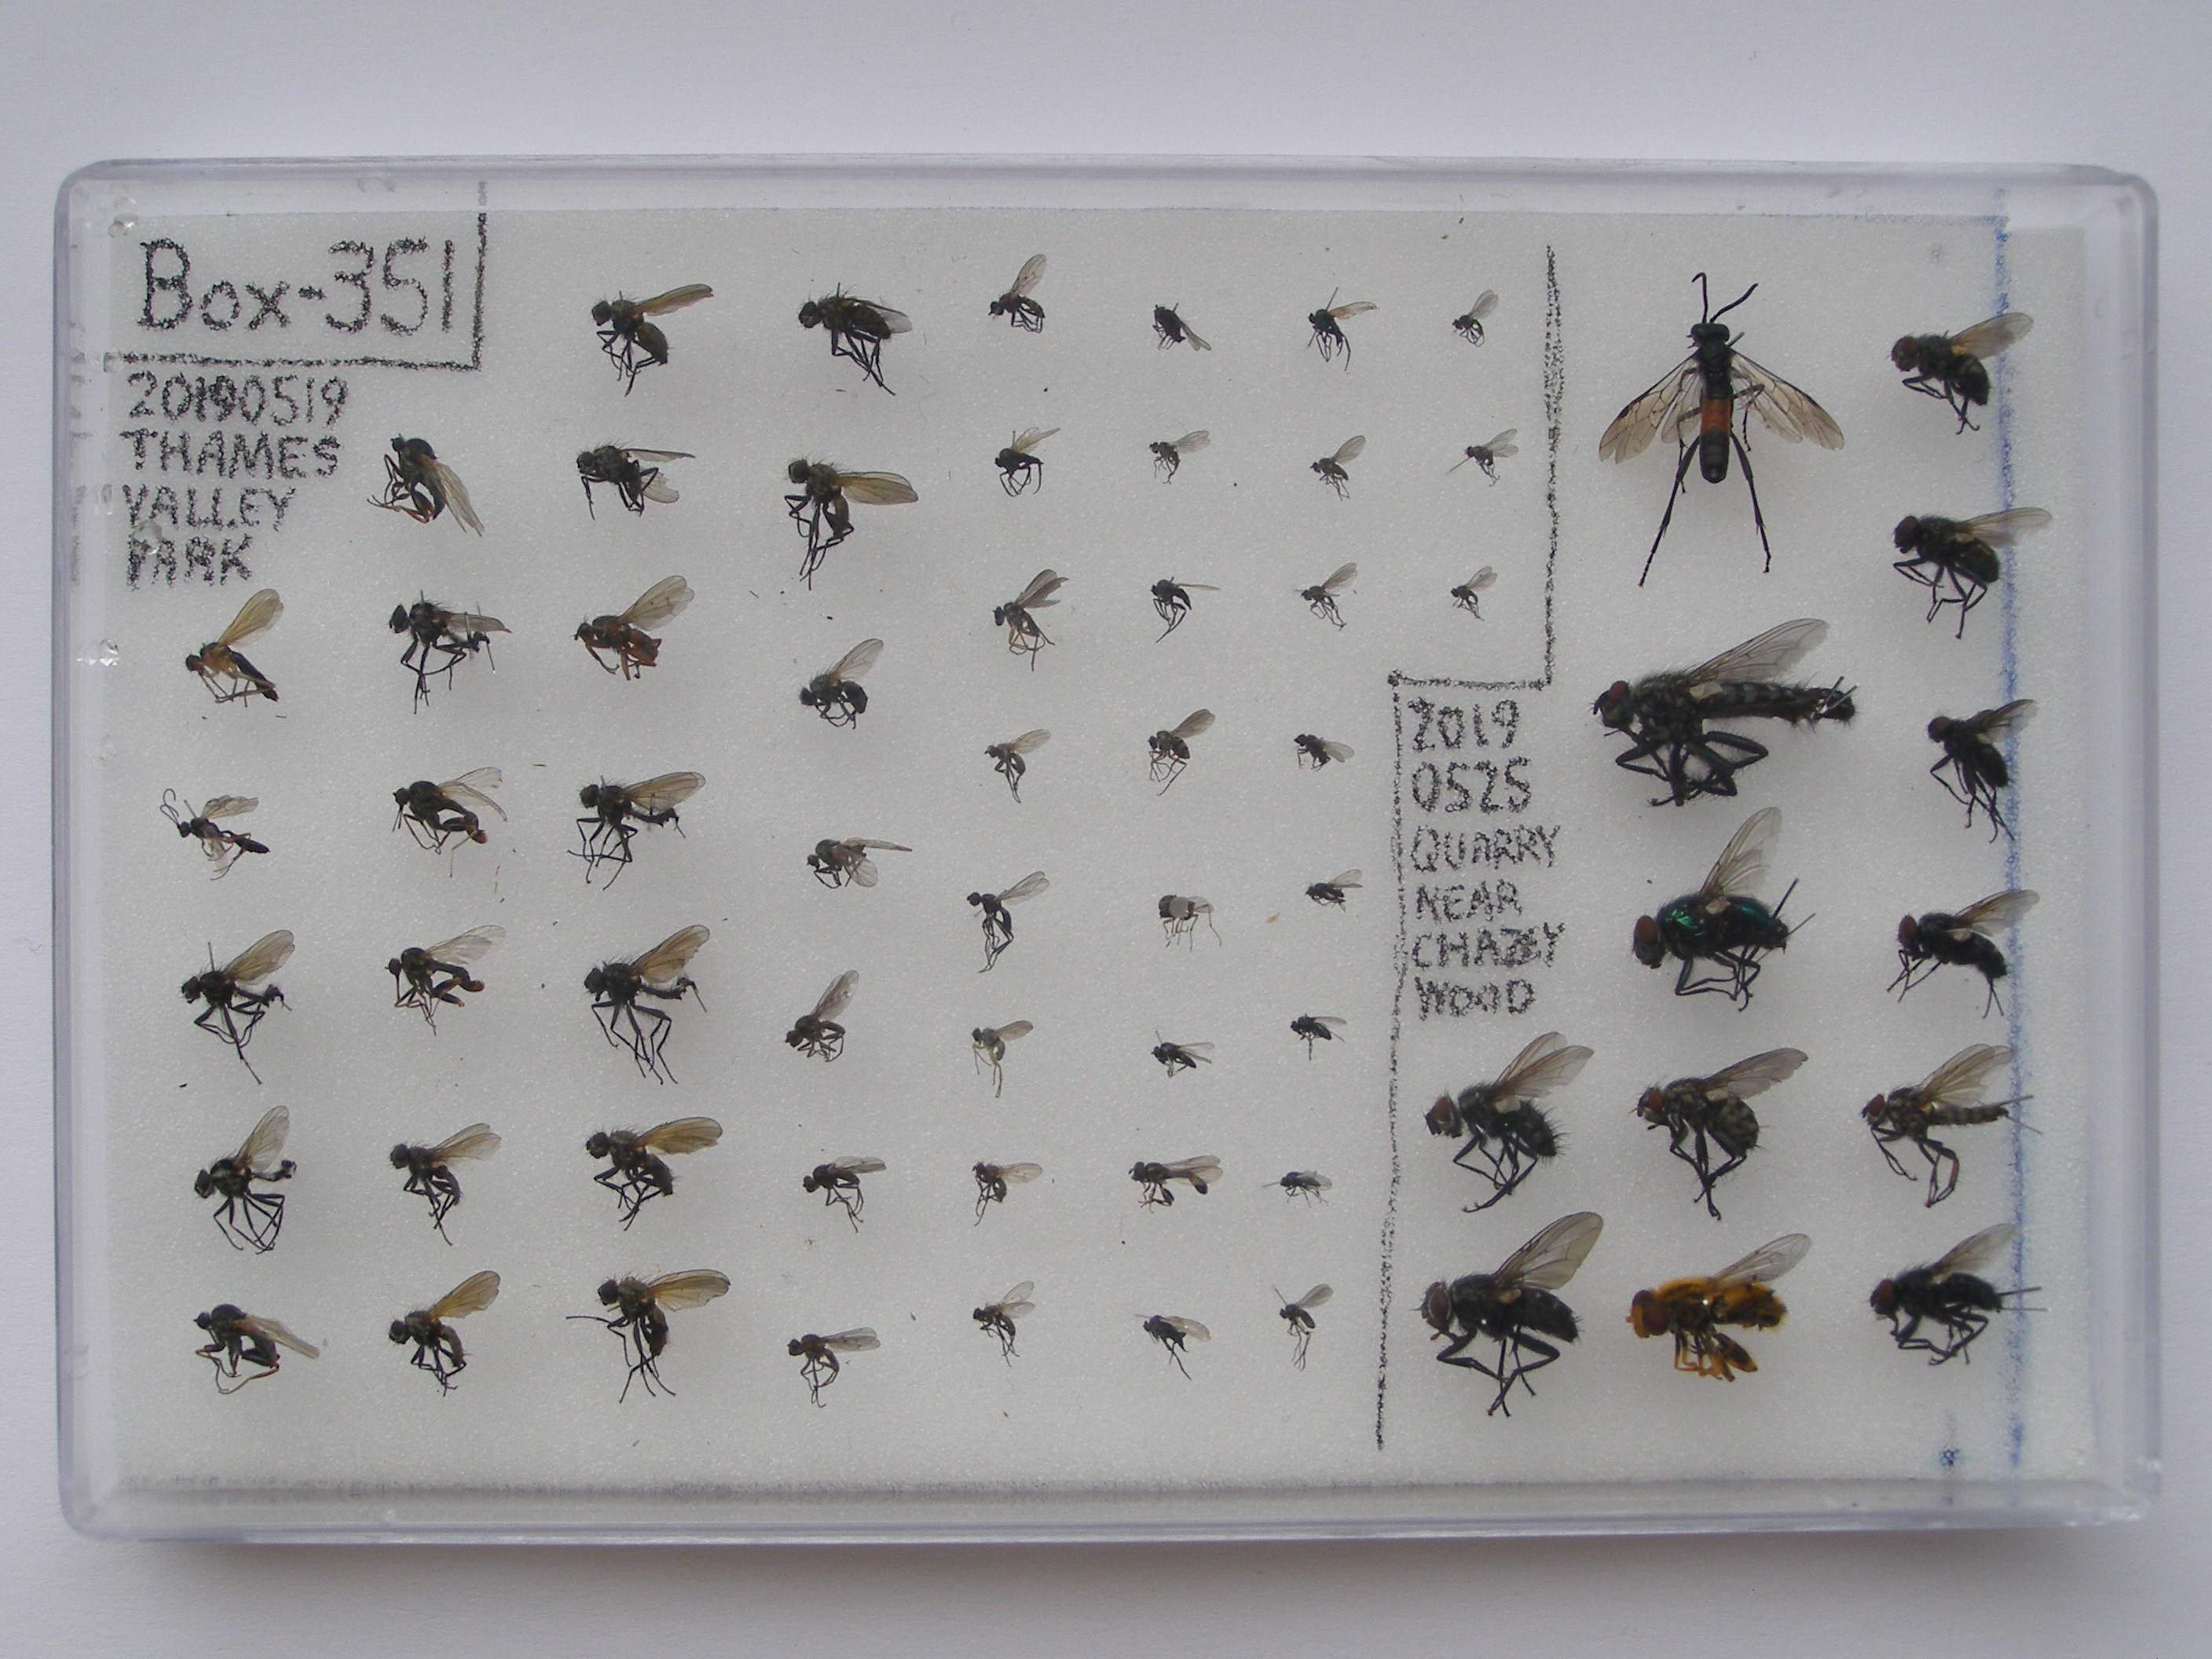 Box-351
20190519
THAMES
VALLEY
PARK
2019
0525
QUARRY
NEAR
CHAZEY
WOOD